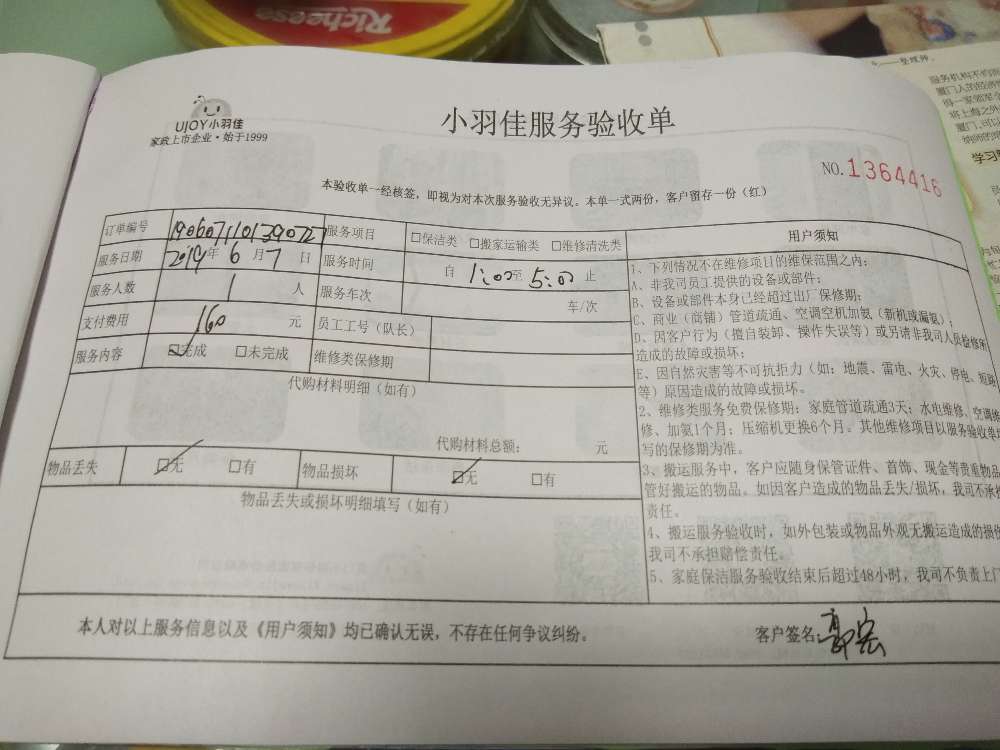 Richeese
UJOY小羽佳
家政上市企业·始于1999
小羽佳服务验收单
NO.1364416
本验收单一经核签，即视为对本次服务验收无异议。本单一式两份，客户留存一份（红）
订单编号 服务项目 □保洁类 □搬家运输类 □维修清洗类
服务日期 2019年 6月 7日 服务时间 自 1:00 至 5:00 止
服务人数 1 人 服务车次 车/次
支付费用 160 元 员工工号（队长）
服务内容 ☑完成 □未完成 维修类保修期
代购材料明细（如有）
代购材料总额： 元
物品丢失 ☑无 □有 物品损坏 ☑无 □有
物品丢失或损坏明细填写（如有）
用户须知
1、下列情况不在维修项目的维保范围之内：
A、非我司员工提供的设备或部件；
B、设备或部件本身已经超过出厂保修期；
C、商业（商铺）管道疏通、空调空机加氨（新机或漏氨）；
D、因客户行为（擅自装卸、操作失误等）或另请非我司人员检修所
造成的故障或损坏；
E、因自然灾害等不可抗拒力（如：地震、雷电、火灾、停电、短路
等）原因造成的故障或损坏。
2、维修类服务免费保修期：家庭管道疏通3天；水电维修、空调维
修、加氨1个月；压缩机更换6个月。其他维修项目以服务验收单填
写的保修期为准。
3、搬运服务中，客户应随身保管证件、首饰、现金等贵重物品
管好搬运的物品。如因客户造成的物品丢失/损坏，我司不承担
责任。
4、搬运服务验收时，如外包装或物品外观无搬运造成的损伤
我司不承担赔偿责任。
5、家庭保洁服务验收结束后超过48小时，我司不负责上门
本人对以上服务信息以及《用户须知》均已确认无误，不存在任何争议纠纷。
客户签名：郭宏